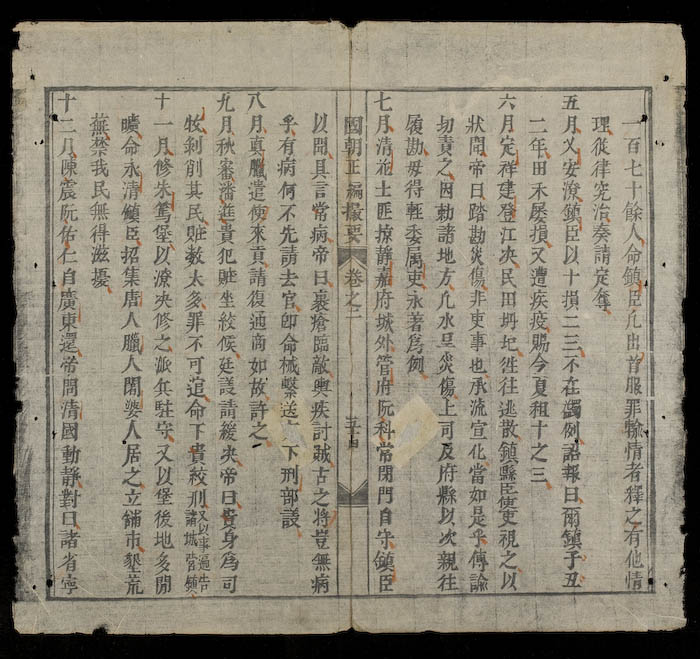 一百七十餘人命鎮臣凢出首服罪輸情者釋之有他情
理從律究治奏請定奪
五月乂安潦鎮臣以十損二三不在蠲例諮報曰爾鎮子丑
二年田禾屢損又遭疾疫賜今夏租十之三
六月定祥建登江決民田坍圮徃往逃散鎮縣臣使吏視之以
狀聞帝曰踏勘災傷非吏事也承流宣化當如是乎傳諭
切責之因勅諸地方凢水旱災傷上司及府縣以次親往
履勘毋得輕委屬吏永著為例
七月清葩土匪掠靜嘉府城外管府阮科常閉門自守鎮臣
國朝正編撮要 卷之二 三十四
以聞具言常病帝曰裹瘡臨敵輿疾討賊古之將豈無病
乎有病何不先請去官即命械繫送下刑部議
八月真臘遣使來貢請復通商如故許之
九月秋審潘進貴犯贓坐絞候廷議請緩決帝曰貴身為司
牧剝削其民贓款太多罪不可逭命下貴絞刑又以事遍告諸城營鎮
十一月修朱篤堡以潦決修之派兵駐守又以堡後地多閒
曠命永清鎮臣招集唐人臘人闍婆人居之立鋪市墾荒
蕪禁我民無得滋擾
十二月陳震阮佑仁自廣東還帝問清國動靜對曰諸省寧